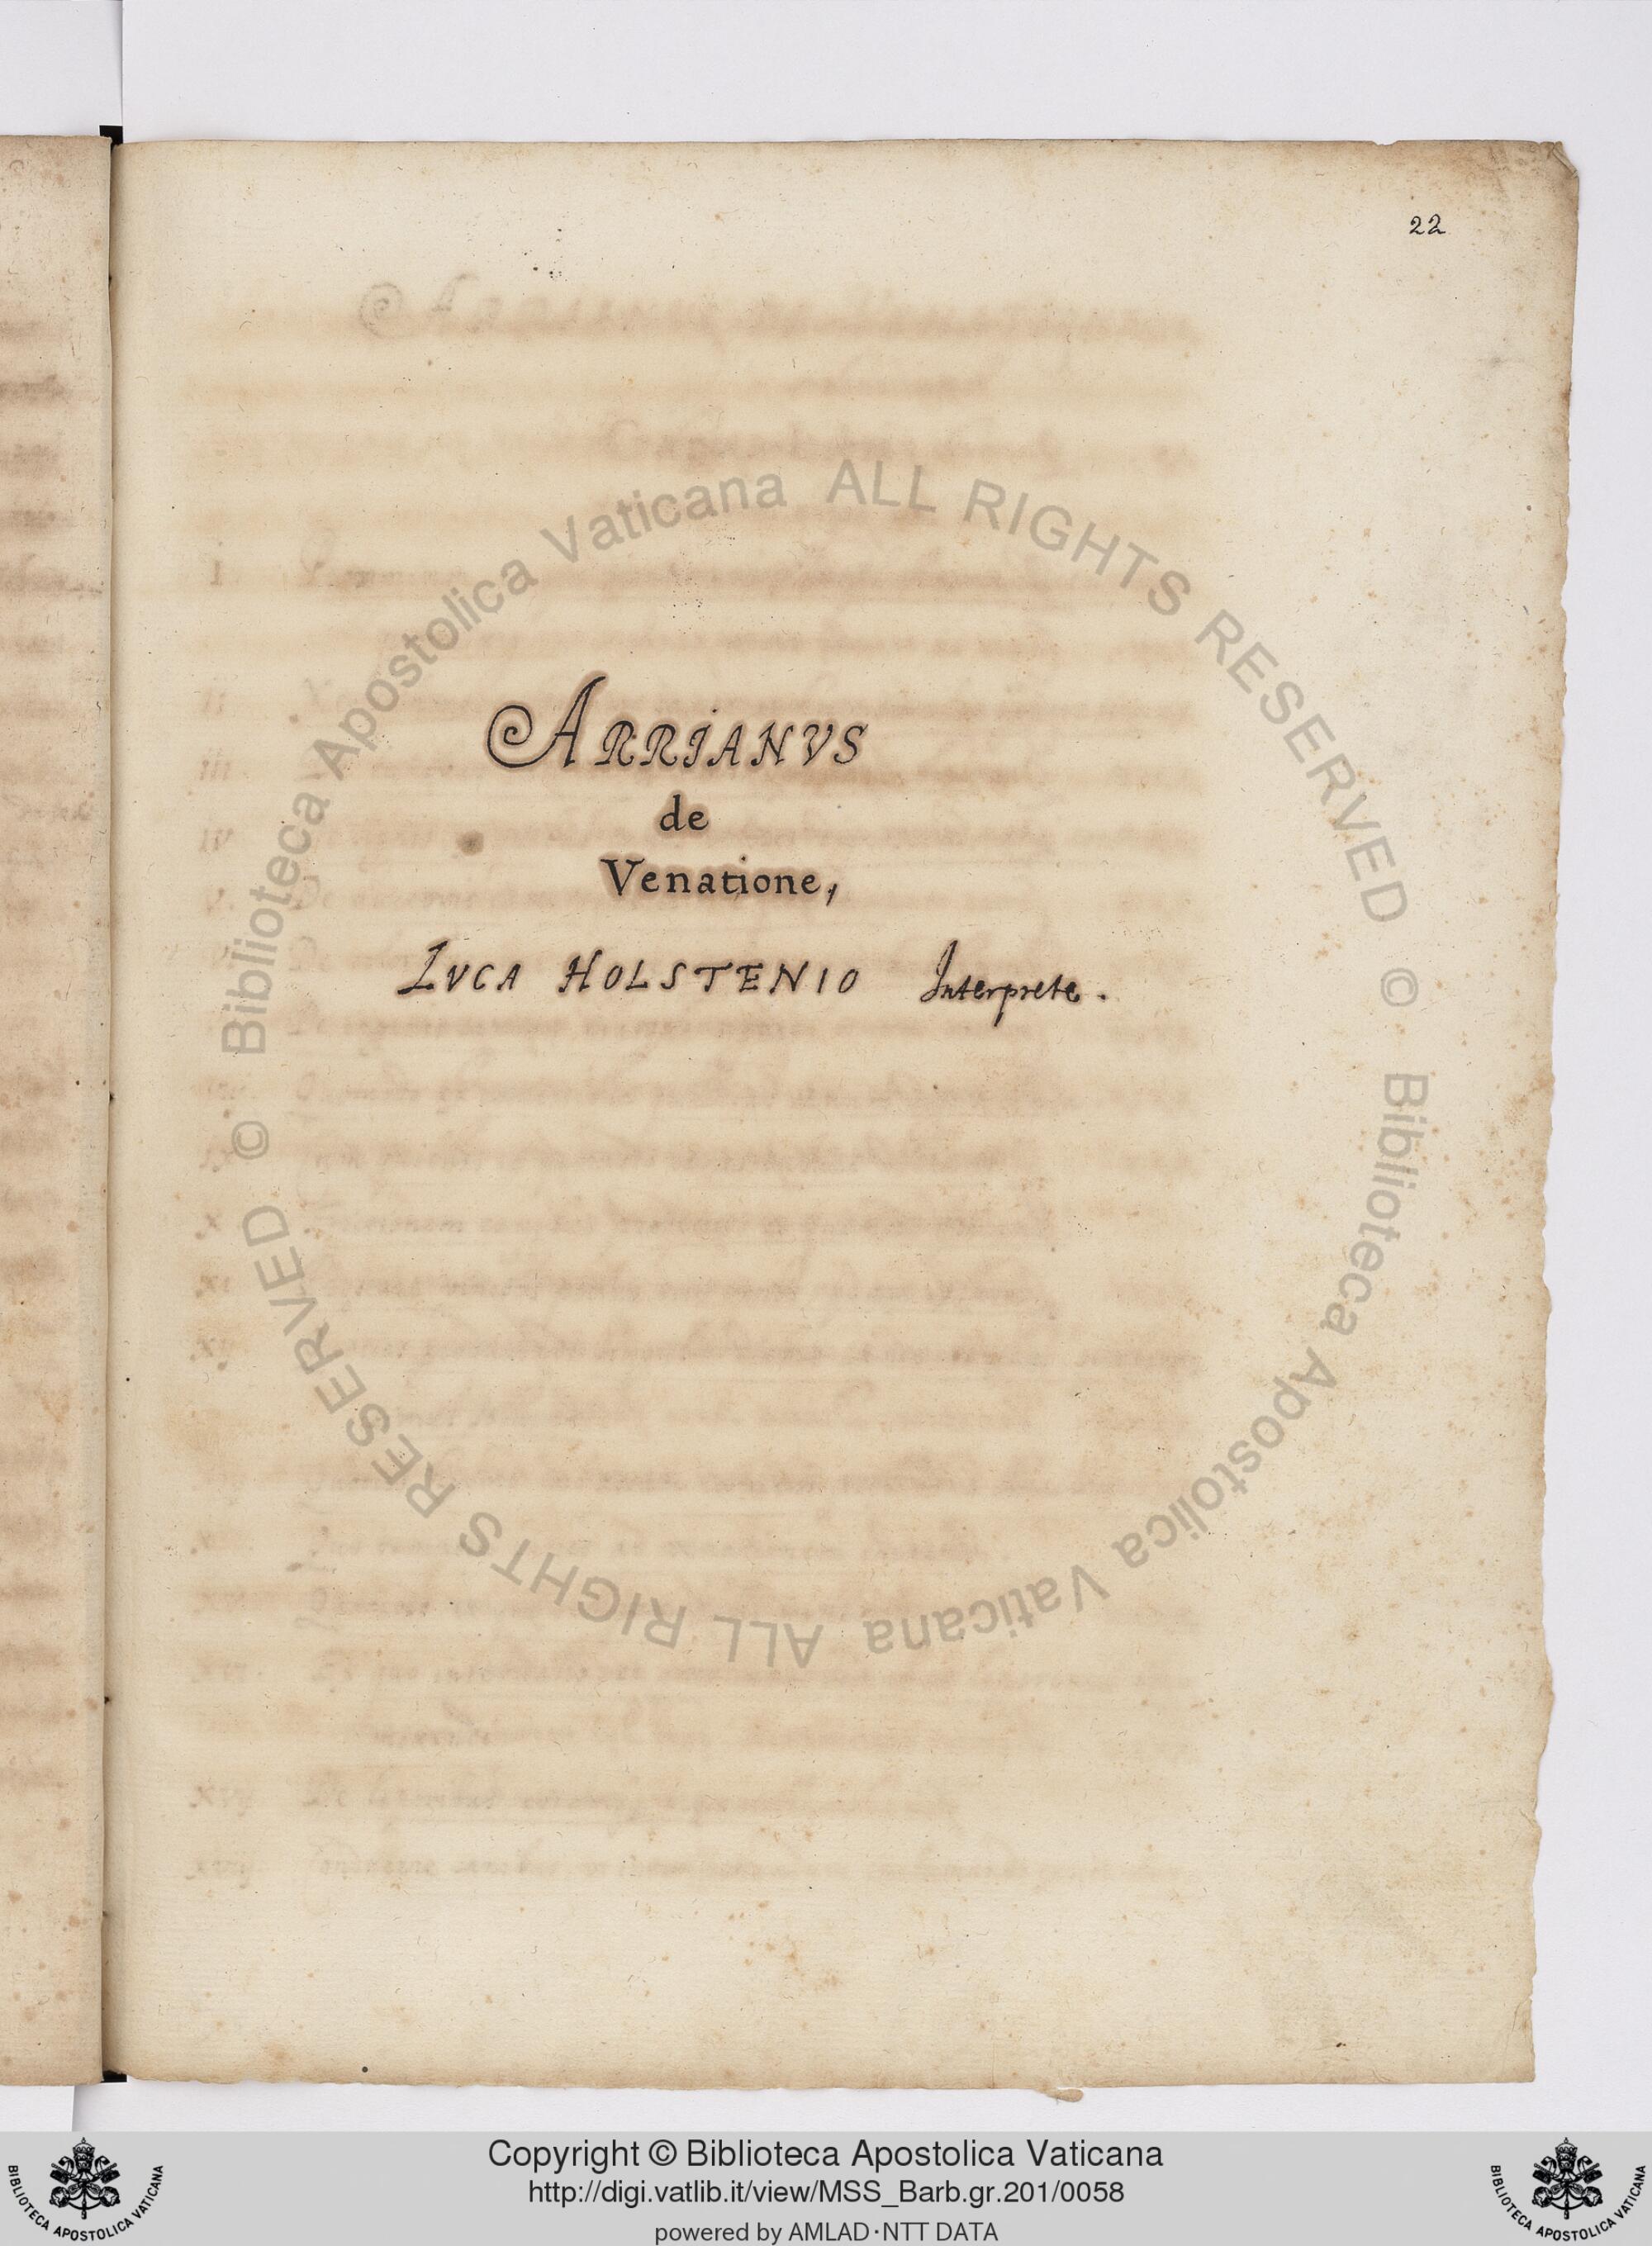 22
ARRIANVS
de
Venatione,
LVCA HOLSTENIO Interprete.
© Biblioteca Apostolica Vaticana ALL RIGHTS RESERVED
© Biblioteca Apostolica Vaticana ALL RIGHTS RESERVED
Copyright © Biblioteca Apostolica Vaticana
http://digi.vatlib.it/view/MSS_Barb.gr.201/0058
powered by AMLAD·NTT DATA
BIBLIOTECA APOSTOLICA VATICANA
BIBLIOTECA APOSTOLICA VATICANA